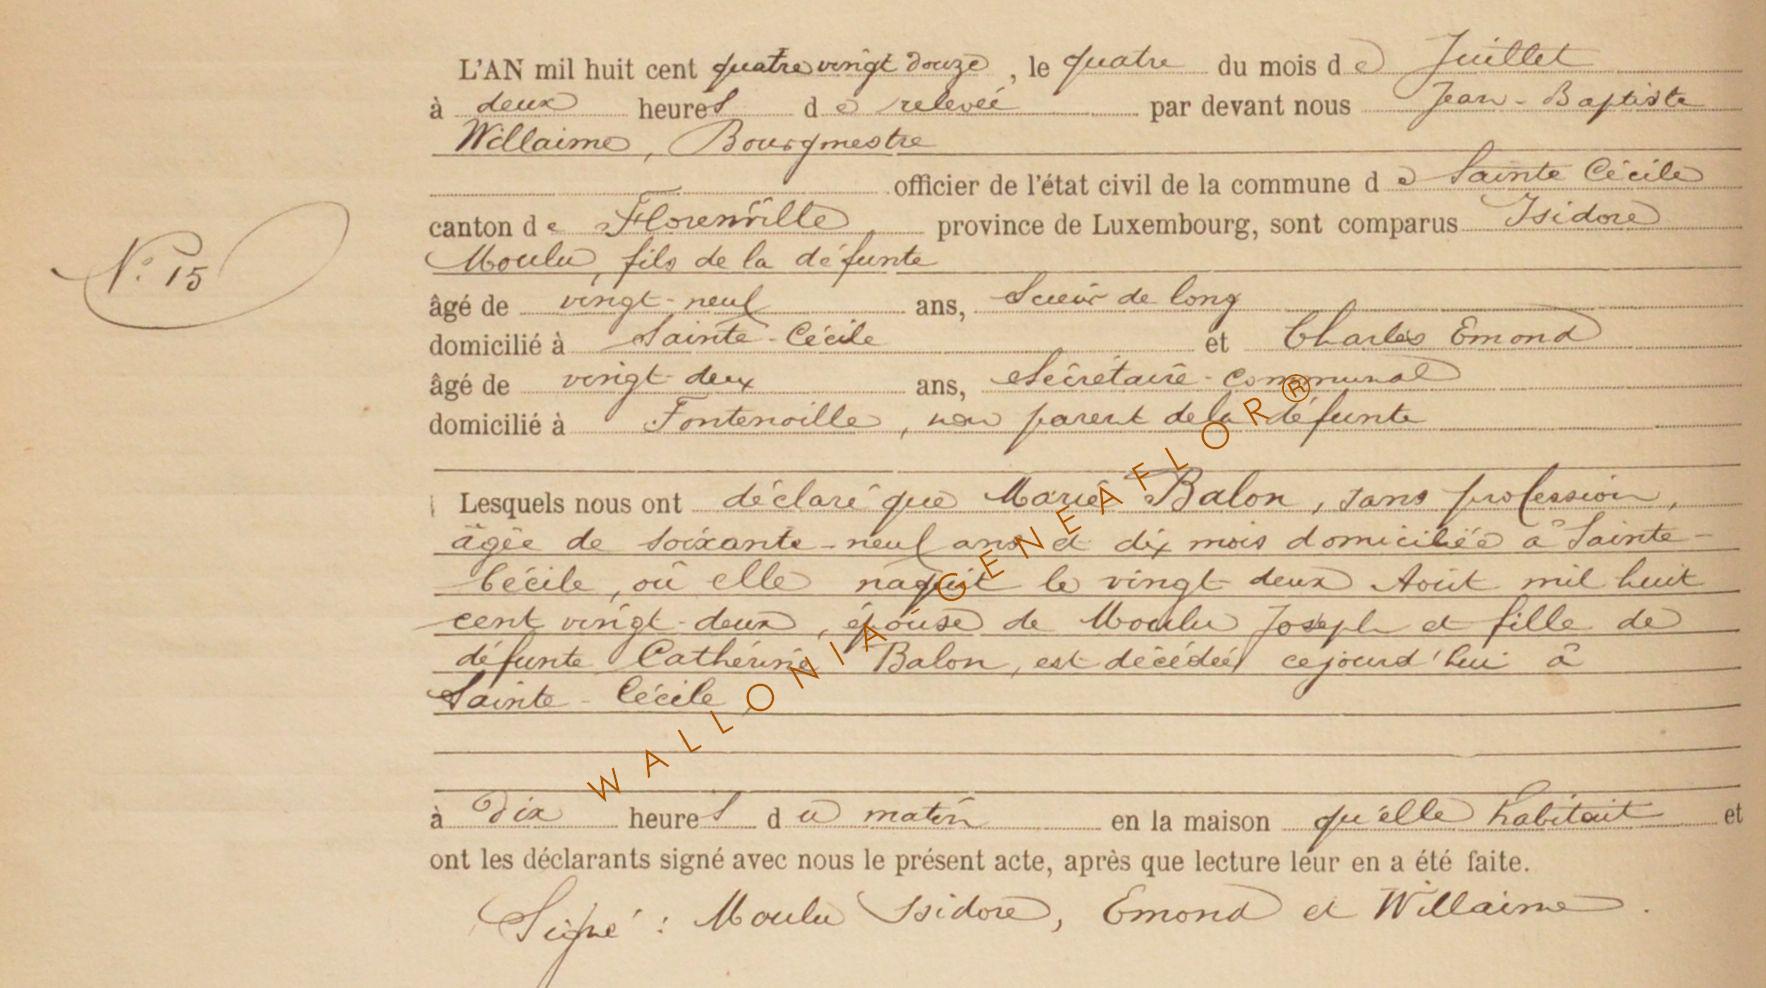 L'AN mil huit cent quatre vingt douze, le quatre du mois de Juillet
à deux heures de relevée par devant nous Jean-Baptiste
Willaime, Bourgmestre
officier de l'état civil de la commune de Sainte Cécile
canton de Florenville province de Luxembourg, sont comparus Isidore
Moulu, fils de la défunte
N° 15
âgé de vingt-neuf ans, Scieur de long
domicilié à Sainte-Cécile et Charles Emond
âgé de vingt-deux ans, Secrétaire-communal
domicilié à Fontenoille, non parent de la défunte
Lesquels nous ont déclaré que Marie Balon, sans profession,
âgée de soixante-neuf ans et dix mois domiciliée à Sainte-
Cécile, où elle naquit le vingt-deux Août mil huit
cent vingt-deux, épouse de Moulu Joseph et fille de
défunte Cathérine Balon, est décédée cejourd'hui à
Sainte-Cécile
à dix heures du matin en la maison qu'elle habitait et
ont les déclarants signé avec nous le présent acte, après que lecture leur en a été faite.
Signé : Moulu Isidore, Emond et Willaime.
WALLONIA GENEAFLOR®